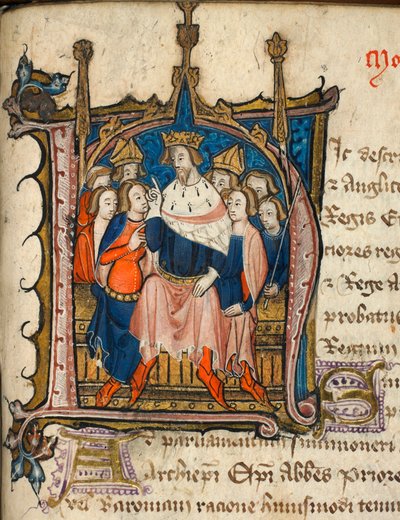 Mo
Hic descri
& Anglico
Regis E
ciores reg
& Rege A
probatus
Ad parliamentum summoneri
Archiepi Epi Abbes Priore
vel Baroniam racione huiusmodi tenur